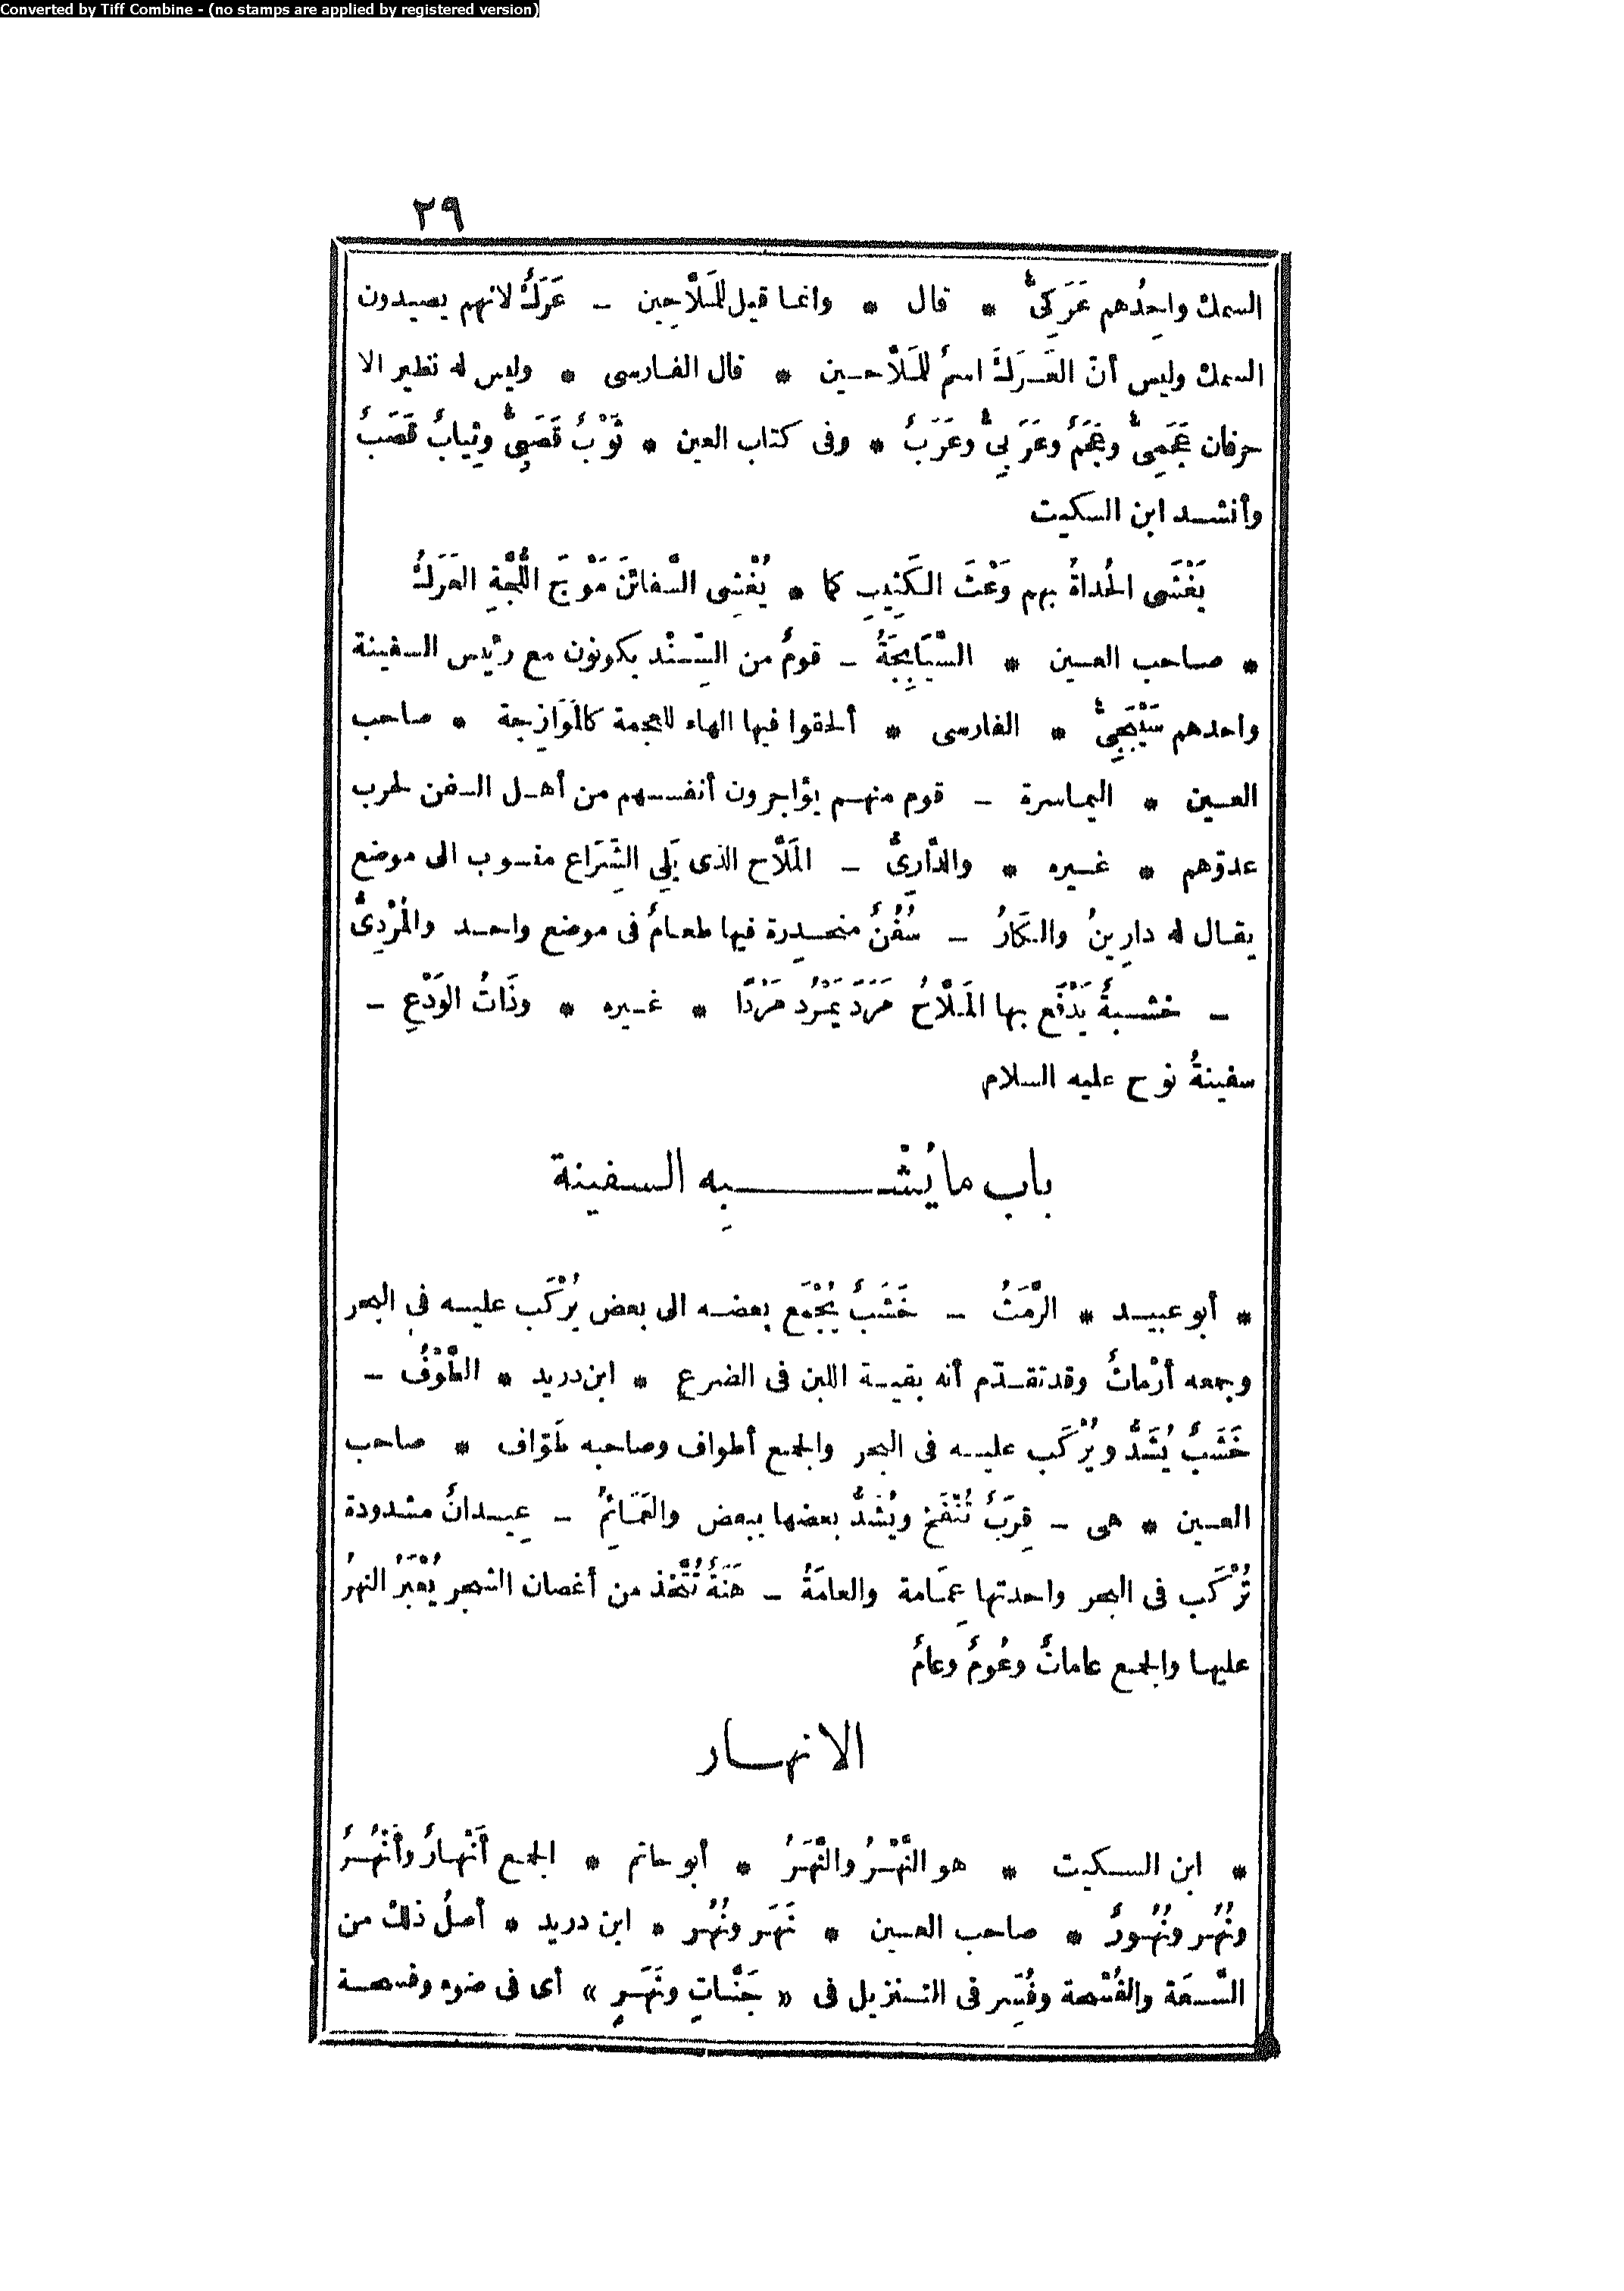 Converted by Tiff Combine - (no stamps are applied by registered version)
٢٩
السمك واحِدُهم عَرَكىٌّ * قال * وانما قيل للمَلَّاحِين – عَرَكٌ لانهم يصيدون
السمك وليس أنّ العَرَكَ اسمٌ للمَلَّاحين * قال الفارسى * وليس له نظير الا
حرفان عَجَمِىٌّ وعَجَمٌ وعَرَبىٌّ وعَرَبٌ * وفى كتاب العين * ثَوْبٌ قَصَبِىٌّ وثِيابٌ قَصَبٌ
وأنشد ابن السكيت
يَغْشَى الحُداةُ بهم وَعْثَ الكَثِيبِ كما * يُغْشِى السَّفائنَ مَوْجَ اللُّجَّةِ العَرَكُ
* صاحب العين * السَّبَابِجَةُ – قومٌ من السِّنْد يكونون مع رئيس السفينة
واحدهم سَيْبَجِىٌّ * الفارسى * ألحقوا فيها الهاء للعجمة كالمَوَازِجة * صاحب
العين * اليماسرة – قوم منهم يؤاجرون أنفسهم من أهل السفن لحرب
عدوّهم * غيره * والدَّارِىُّ – المَلَّاح الذى يَلِى الشِّرَاع منسوب الى موضع
يقال له دارِينُ والكَارُ – سُفُنٌ منحدِرة فيها طعامٌ فى موضع واحد والمُرْدِىُّ
– خشبةٌ يَدْفَع بها المَلَّاحُ مَرَدَ يَمْرُد مَرْدًا * غيره * وذَاتُ الوَدْعِ –
سفينةُ نوح عليه السلام
باب ما يُشْبِه السفينة
* أبو عبيد * الرَّمَثُ – خَشَبٌ يُجْمَع بعضه الى بعض يُرْكَب عليه فى البحر
وجمعه أرْماثٌ وقد تقدّم أنه بقية اللبن فى الضرع * ابن دريد * الطَّوْفُ –
خَشَبٌ يُشَدُّ ويُرْكَب عليه فى البحر والجمع أطواف وصاحبه طَوّاف * صاحب
العين * هى – قِرَبٌ تُنْفَخ ويُشَدُّ بعضها ببعض والعَمَائِمُ – عِيدانٌ مشدودة
تُرْكَب فى البحر واحدتها عِمَامة والعامَةُ – هَنَةٌ تُتَّخذ من أغصان الشجر يُعْبَرُ النهرُ
عليها والجمع عاماتٌ وعُومٌ وعامٌ
الانهار
* ابن السكيت * هو النَّهْرُ والنَّهَرُ * أبو حاتم * الجمع أَنْهارٌ وأَنْهُرٌ
ونُهُر ونُهُورٌ * صاحب العين * نَهَر ونُهُر * ابن دريد * أصلُ ذلك من
السَّعَة والفُسْحة وفُسِّر فى التنزيل فى « جَنَّاتٍ ونَهَرٍ » أى فى ضوء وفسحة